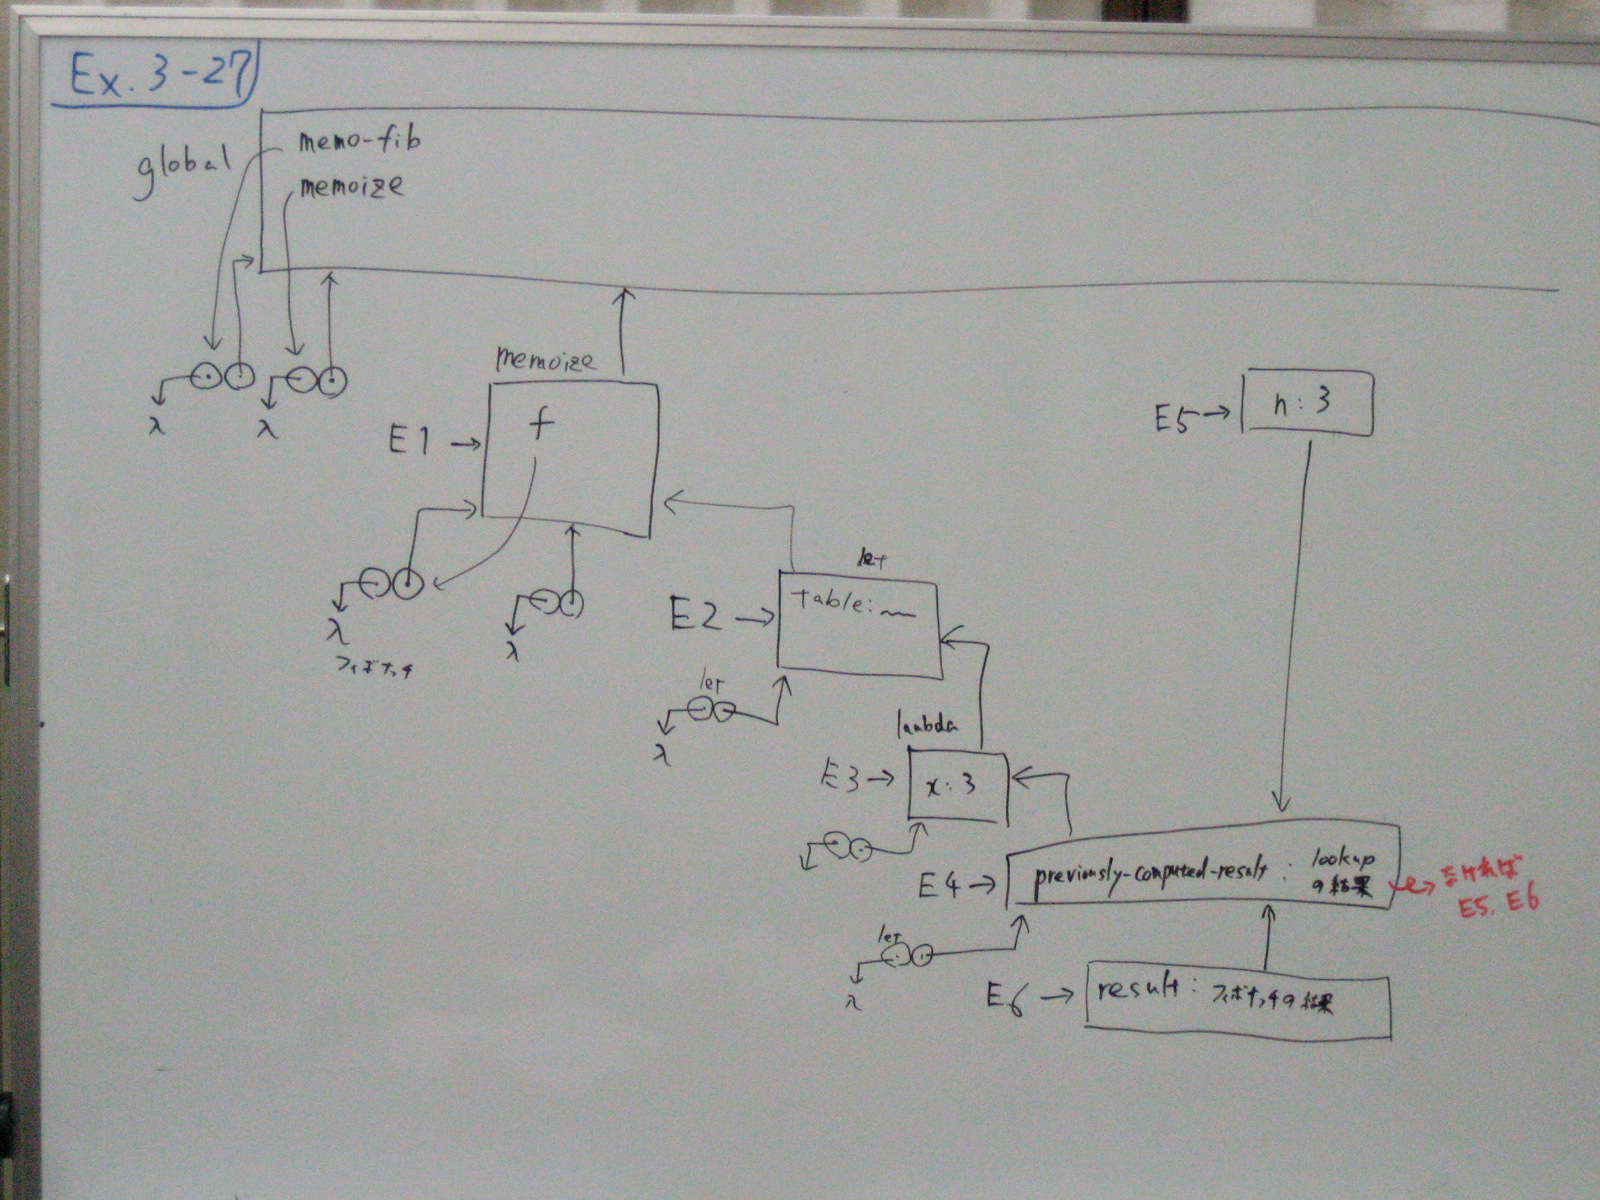 Ex. 3-27
global
memo-fib
memoize
λ
λ
memoize
E1 →
f
E5 →
n: 3
λ
フィボナッチ
λ
let
E2 →
table:
let
λ
lambda
E3 →
x: 3
E4 →
previously-computed-result : lookup
の結果
なければ
E5, E6
let
λ
E6 →
result: フィボナッチの結果